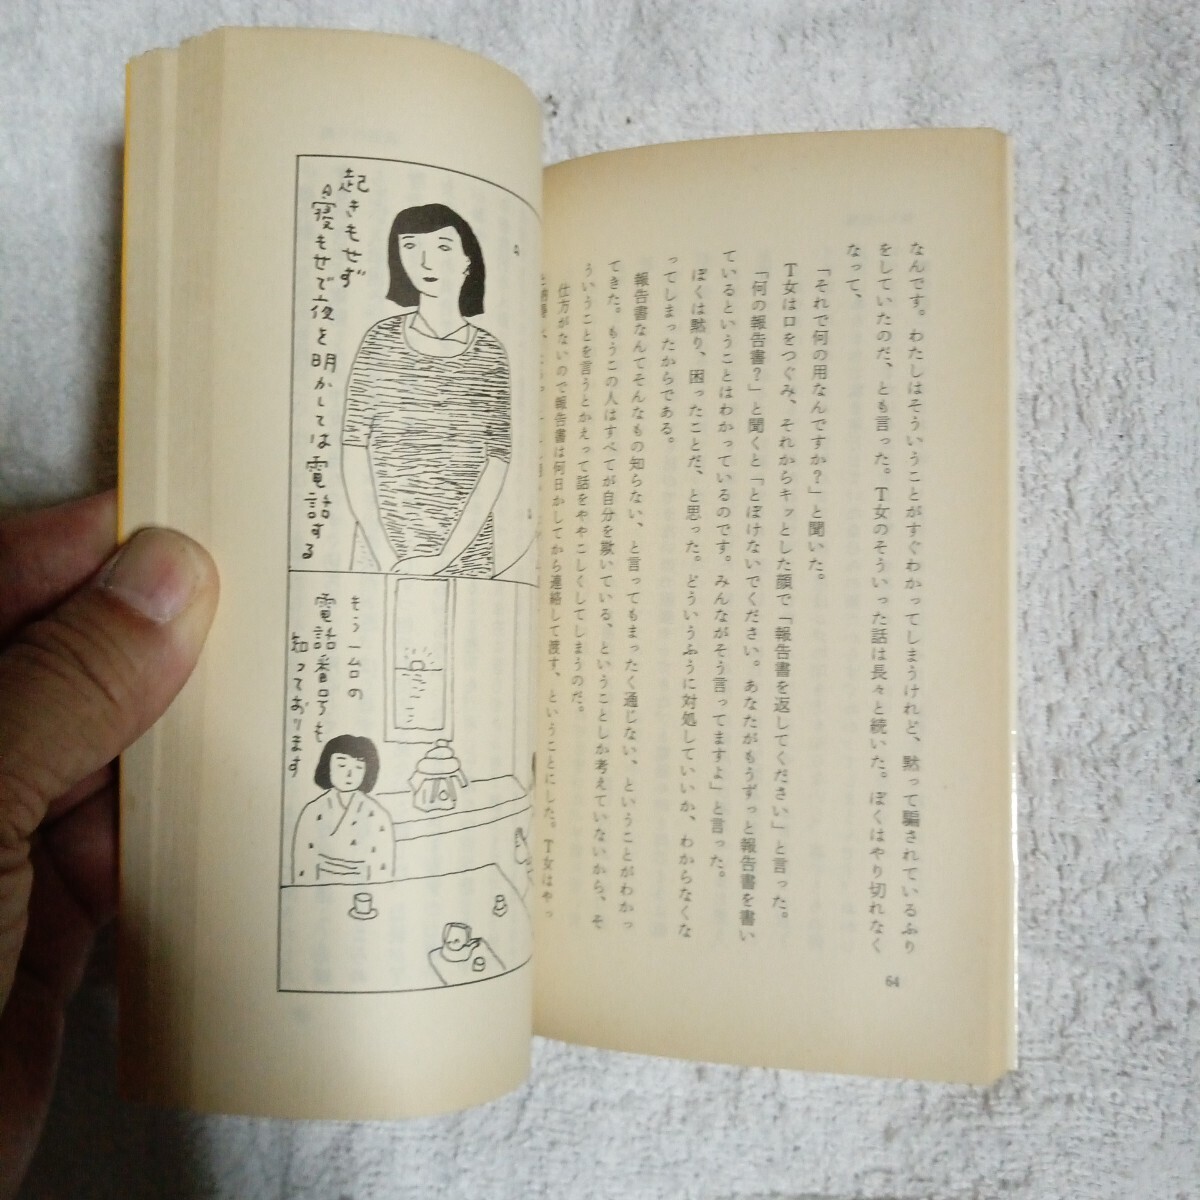 なんです。わたしはそういうことがすぐわかってしまうけれど、黙って騙されているふり
をしていたのだ、とも言った。T女のそういった話は長々と続いた。ぼくはやり切れなく
なって、
「それで何の用なんですか?」と聞いた。
T女は口をつぐみ、それからキッとした顔で「報告書を返してください」と言った。
「何の報告書?」と聞くと「とぼけないでください。あなたがもうずっと報告書を書い
ているということはわかっているのです。みんながそう言ってますよ」と言った。
ぼくは黙り、困ったことだ、と思った。どういうふうに対処していいか、わからなくな
ってしまったからである。
報告書なんてそんなもの知らない、と言ってもまったく通じない、ということがわかっ
てきた。もうこの人はすべてが自分を欺いている、ということしか考えていないから、そ
ういうことを言うとかえって話をややこしくしてしまうのだ。
仕方がないので報告書は何日かしてから連絡して渡す、ということにした。T女はやっ
64
起きもせず
寝もせで夜を明かしては電話する
もう一台の
電話番号も
知っております